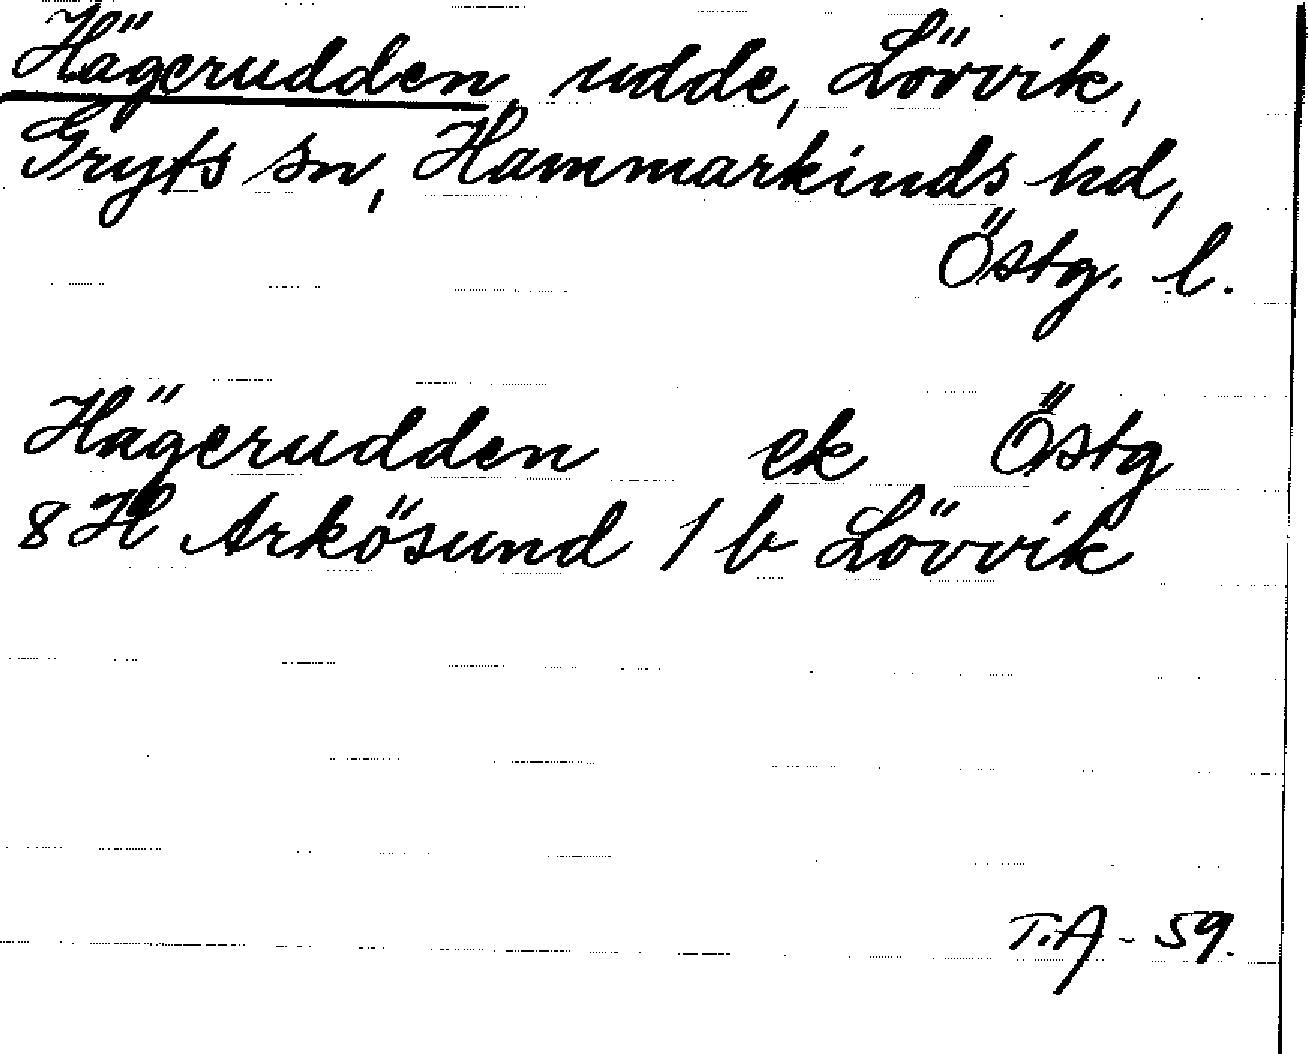 Hägerudden, udde, Lövvik,
Gryts sn, Hammarkinds hd,
Östg. l.
Hägerudden ek Östg
8H Arkösund 1 b Lövvik
T.A - 59.